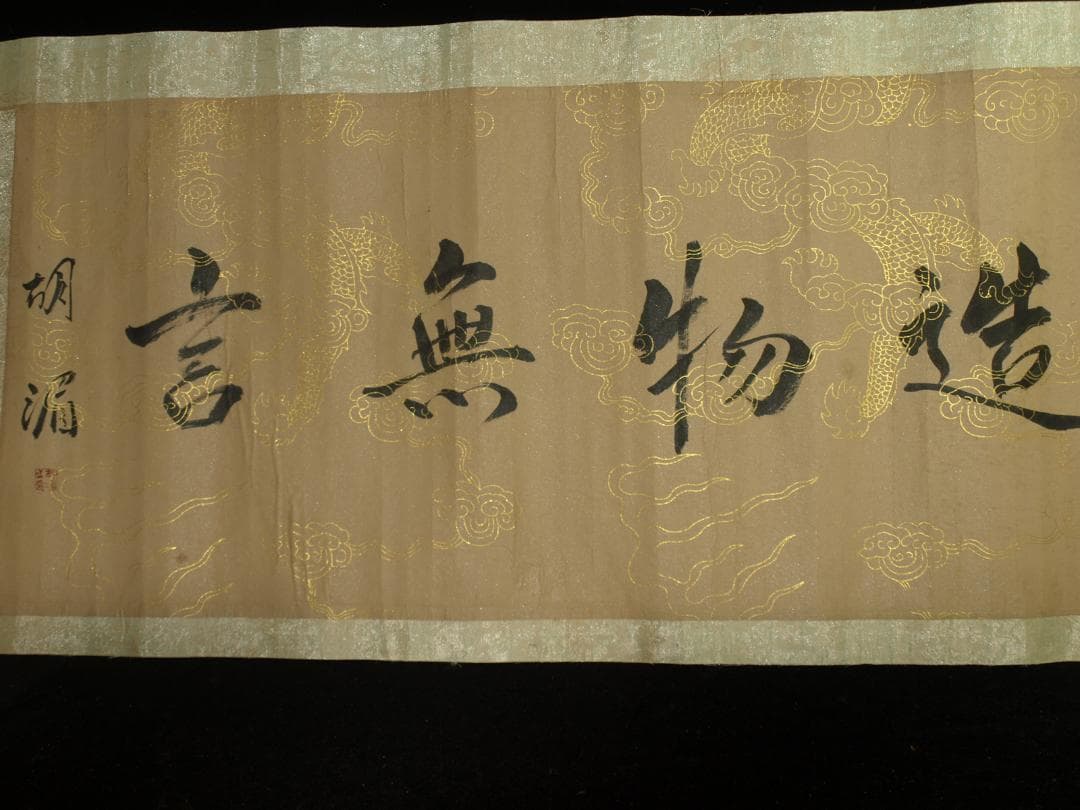 造物無言
胡湄